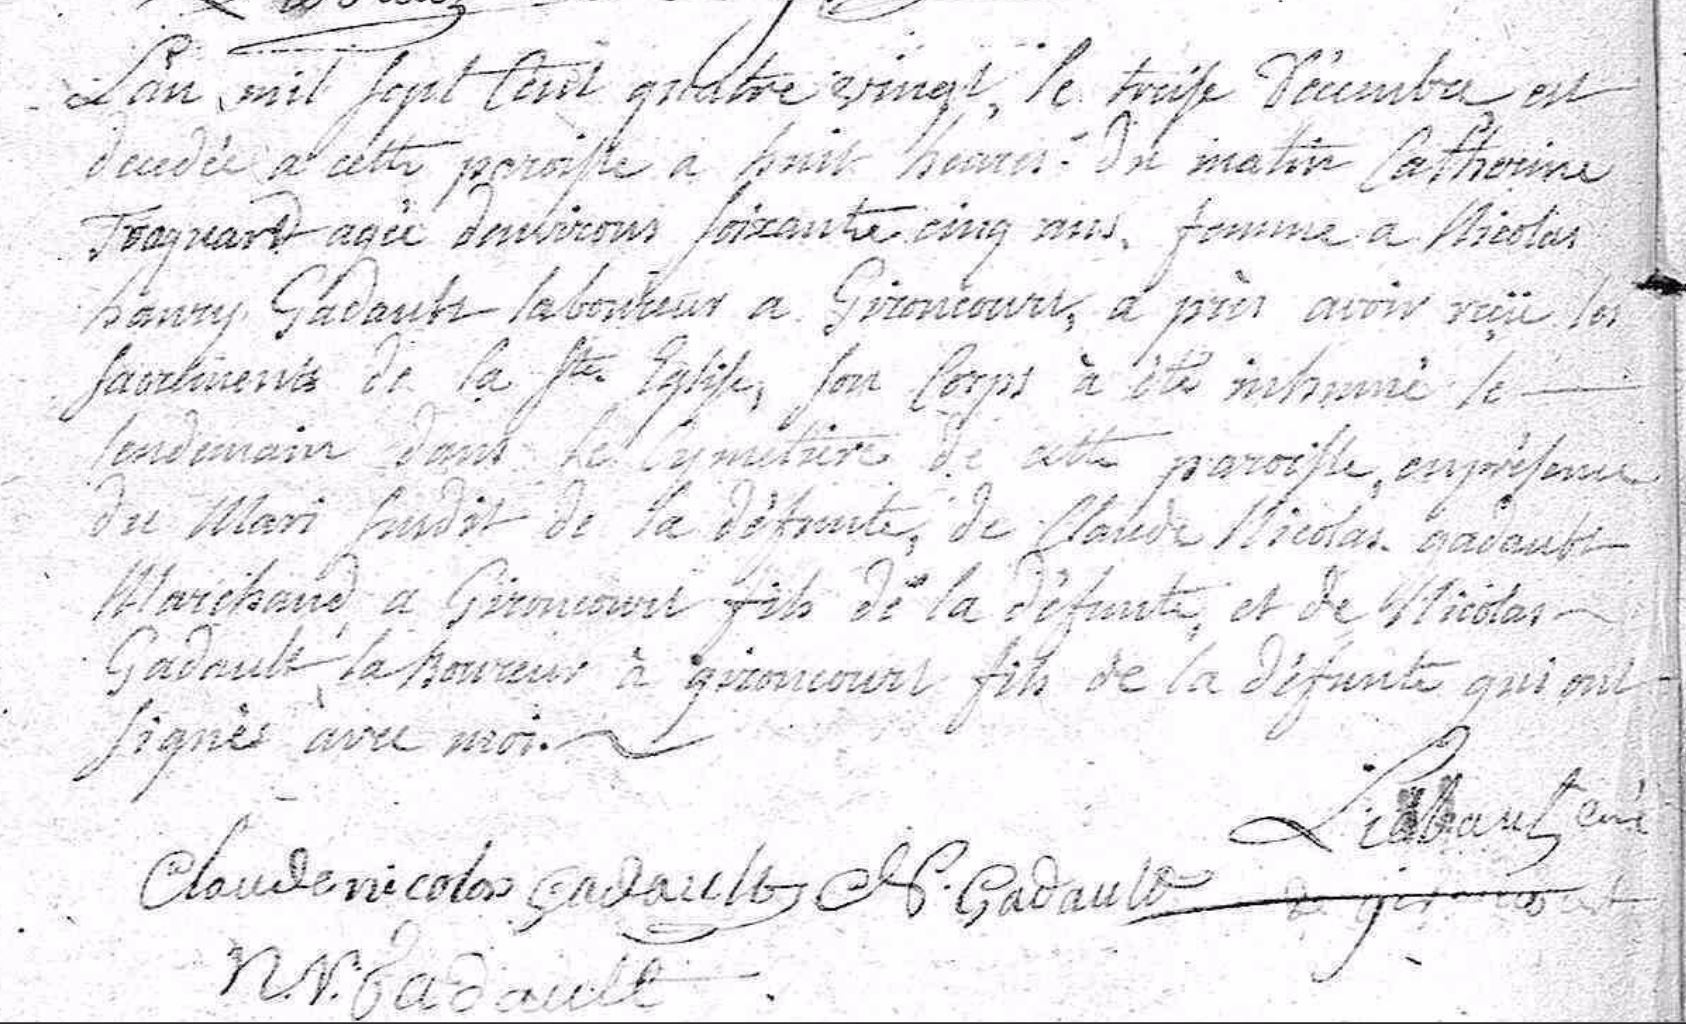 L'an mil sept Cent quatre vingt, le treise Décembre est
decedée a cette paroisse a huit heures du matin Catherine
agée d'environs soixante cinq ans, femme a Nicolas
hanry Gadault laboureur a Gironcourt, a près avoir reçüe les
sacrements de la Ste Eglise, son Corps à été inhumé le
lendemain dans le Cymetiere de cette paroisse, en présence
du Mari susdit de la défunte, de Claude Nicolas gadault
Marchand a Gironcourt fils de la défunte, et de Nicolas
Gadault laboureur à gironcourt fils de la défunte qui ont
signés avec moi.
curé
Claude nicolas Gadault N. Gadault de gironcourt
N. N. Gadault